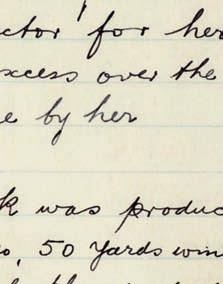 ctor' for her
xcess over the
e by her
k was produc
o, 50 yards win